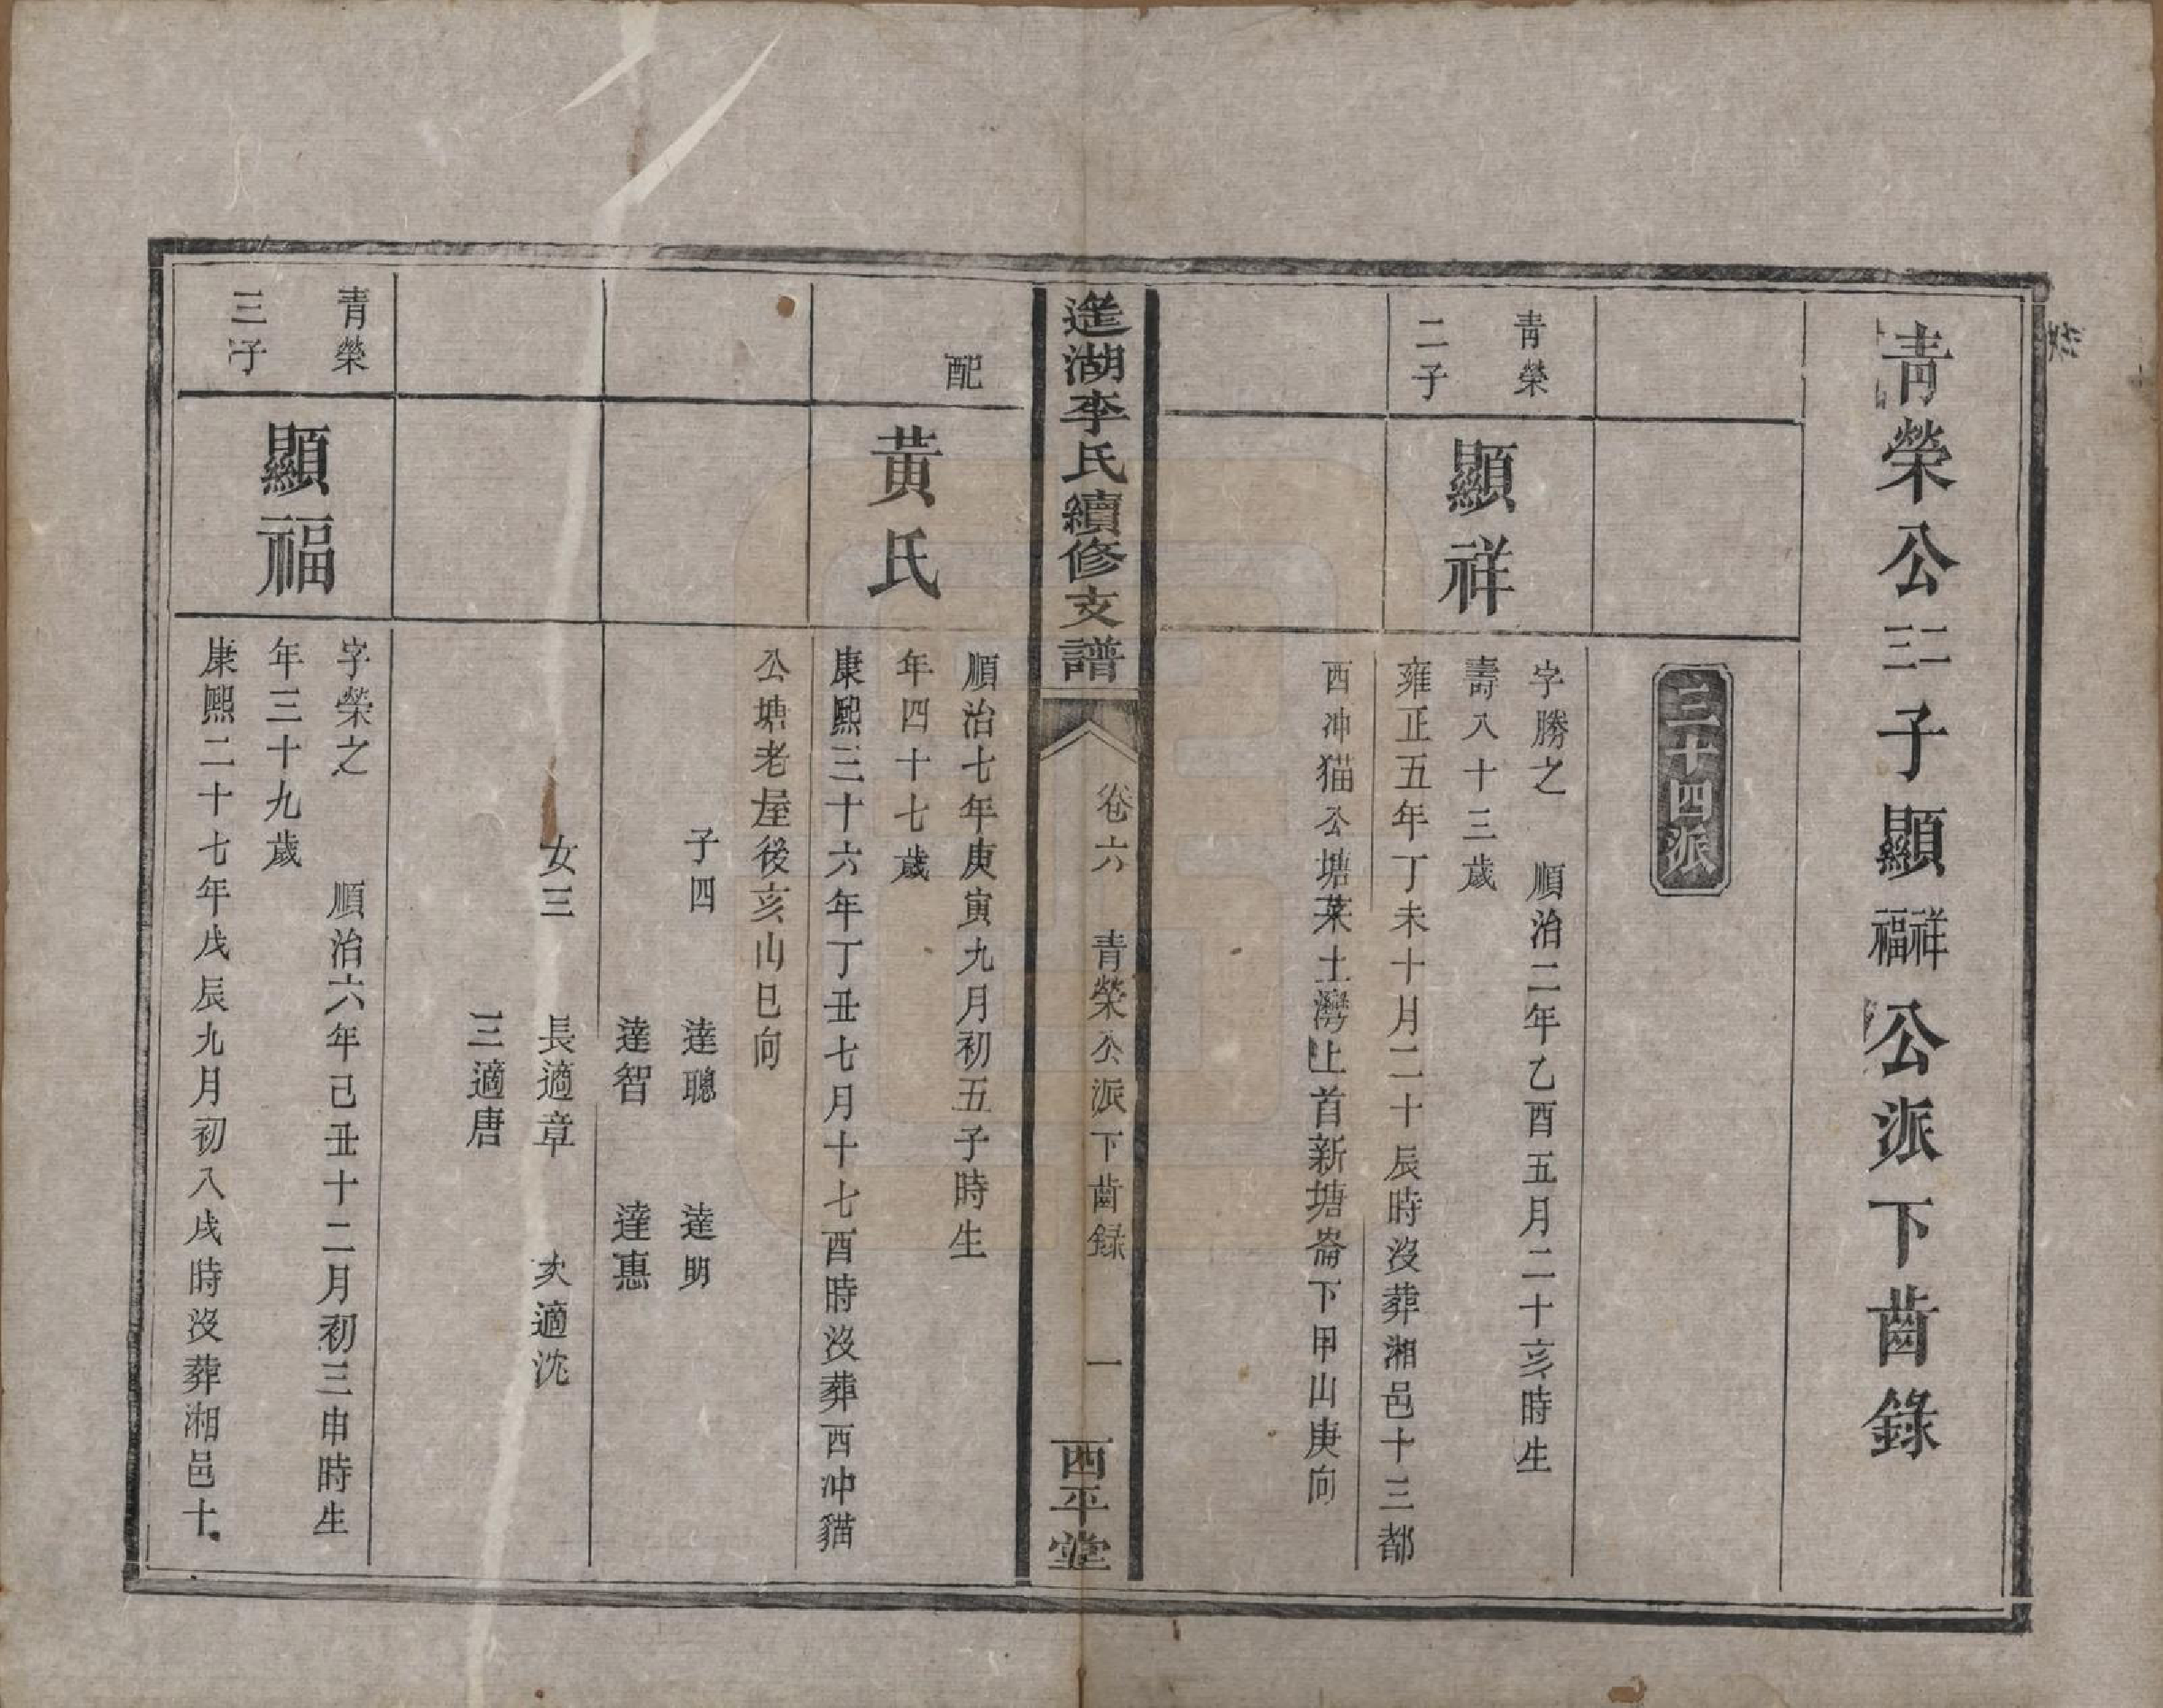 青榮公二三子顯祥福公派下齒錄
三十四派
青榮
二子
顯祥
字勝之 順治二年乙酉五月二十亥時生
壽八十三歲
雍正五年丁未十月二十辰時沒葬湘邑十三都
西冲猫公塘菜土灣上首新塘崙下甲山庚向
湖李氏續修支譜
卷六 青榮公派下齒錄 一
西平堂
配
黃氏
順治七年庚寅九月初五子時生
年四十七歲
康熙三十六年丁丑七月十七酉時沒葬西冲貓
公塘老屋後亥山巳向
子四 達聰 達明
達智 達惠
女三 長適章 次適沈
三適唐
青榮
三子
顯福
字榮之 順治六年己丑十二月初三申時生
年三十九歲
康熙二十七年戊辰九月初八戌時沒葬湘邑十